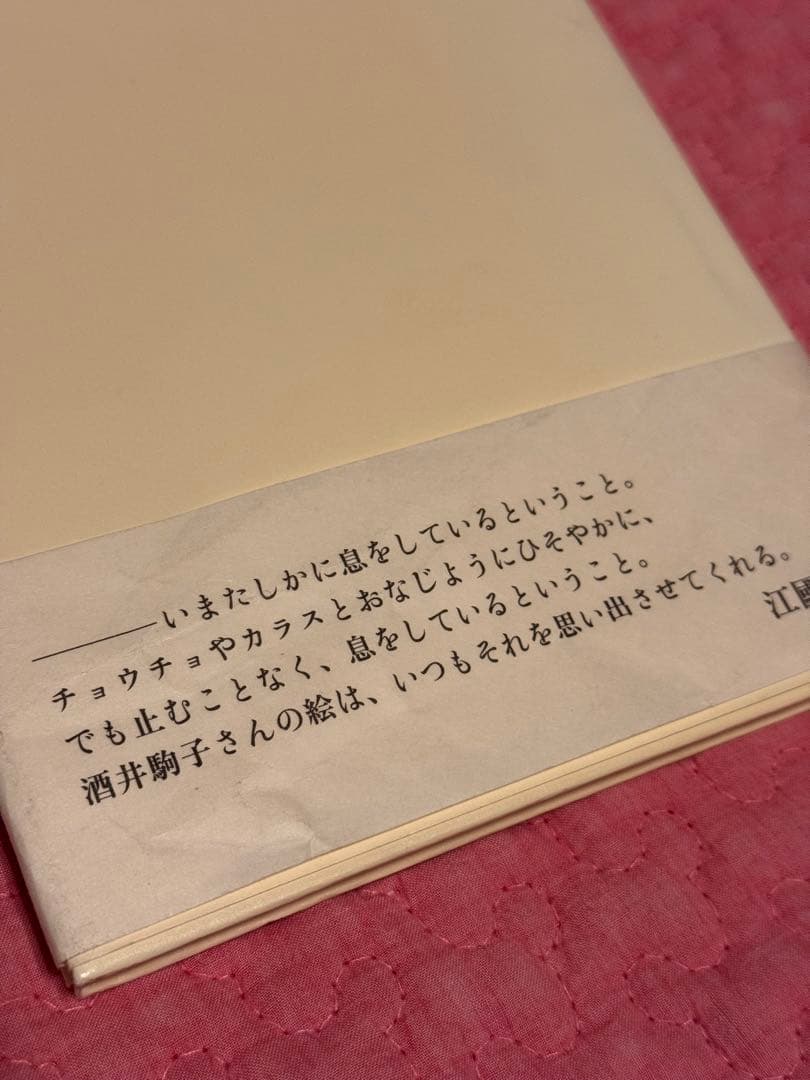 ――いまたしかに息をしているということ。
チョウチョやカラスとおなじようにひそやかに、
でも止むことなく、息をしているということ。
酒井駒子さんの絵は、いつもそれを思い出させてくれる。
江國